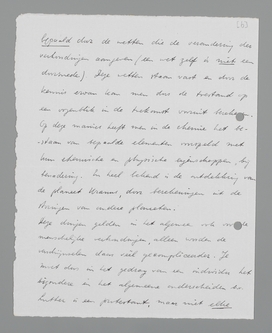 bepaald door de wetten die de verandering der
verhoudingen aangeven (een wet zelf is niet een
Deze wetten staan vast en door de
kennis ervan kan men door de toestand op
een ogenblik in de toekomst vooruit
Op deze manier heeft men in de chemie het be-
staan van bepaalde elementen voorspeld met
hun chemische en physische eigenschappen bij
benadering. En heel bekend is de ontdekking van
de planeet Uranus, door berekeningen uit de
storingen van andere planeten.
Deze dingen gelden in het algemeen ook voor de
menschelijke verhoudingen, alleen worden de
dan veel gecompliceerder. Je
moet dus in het gedrag van een individu het
bijzondere en het algemeene onderscheiden
Luther is een protestant, maar niet elke